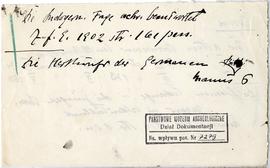 Die Indogerm. Frage
Z. f. E. 1902 str. 161
Die Herkunft der Germanen
Mannus 6
PAŃSTWOWE MUZEUM ARCHEOLOGICZNE
Dział Dokumentacji
Nr. wpływu poz. Nr 7279